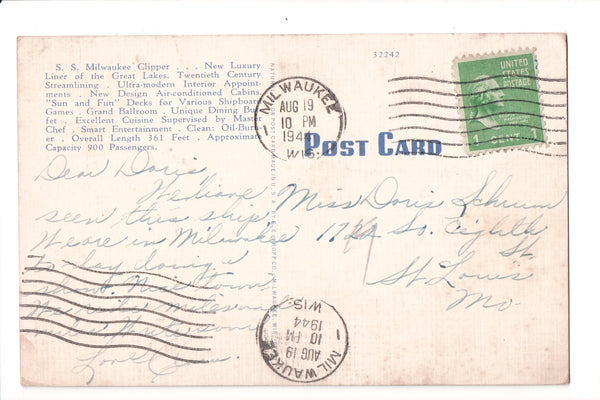 S. S. Milwaukee Clipper . . . New Luxury
Liner of the Great Lakes. Twentieth Century
Streamlining . Ultra-modern Interior Appoint-
ments . New Design Air-conditioned Cabins
"Sun and Fun" Decks for Various Shipboard
Games . Grand Ballroom . Unique Dining Buf-
fet . Excellent Cuisine Supervised by Master
Chef . Smart Entertainment . Clean: Oil-Burn-
er . Overall Length 361 Feet . Approximate
Capacity 900 Passengers.
32242
UNITED
STATES
POSTAGE
1 CENT 1
MILWAUKEE
AUG 19
10 PM
1944
WIS.
POST CARD
Dear Doris
We have
seen this ship.
We are in Milwaukee
To-day doing a
Town,
Love
Miss Doris Schrum
So. Eighth
St.
St. Louis
Mo.
MILWAUKEE
AUG 19
10 PM
1944
WIS.